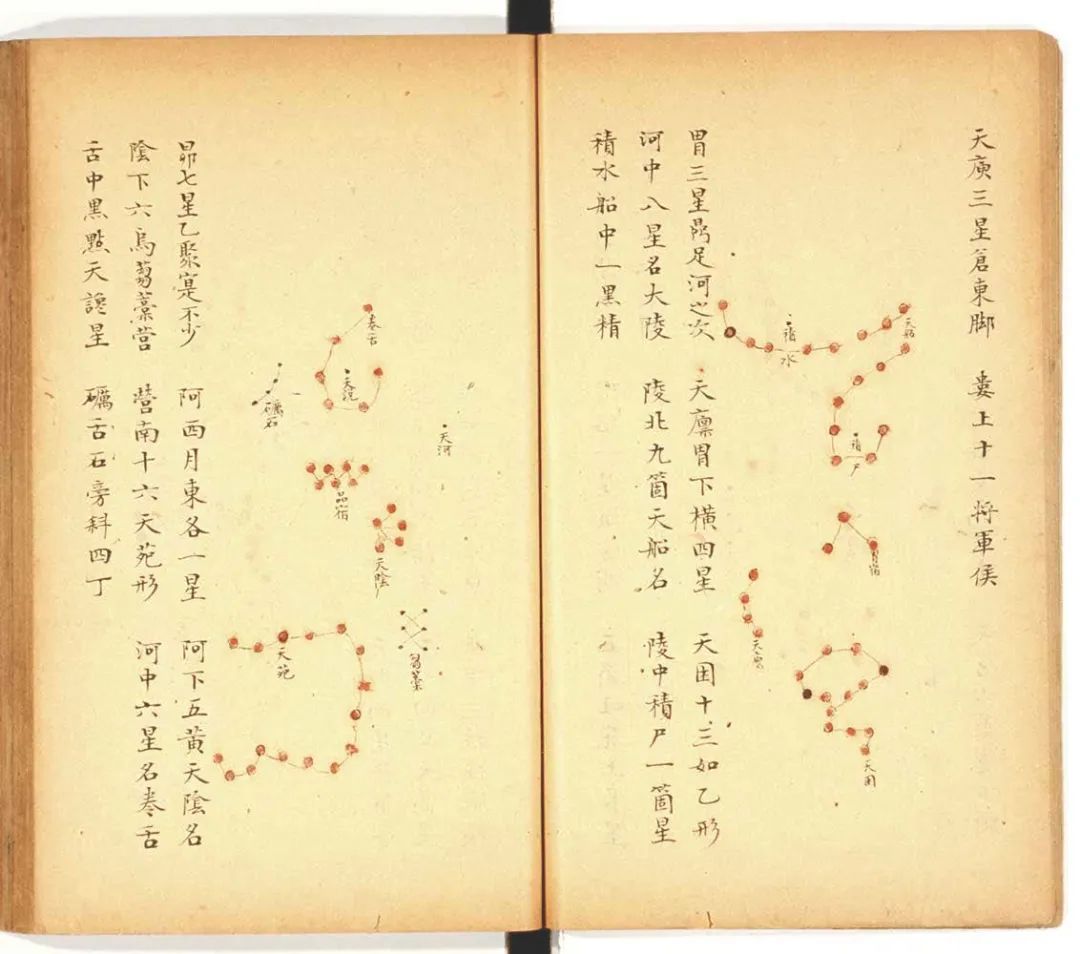 天庾三星倉東脚 婁上十一将軍侯
胃三星鼎足河之次 天廩胃下橫四星 天囷十三如乙形
河中八星名大陵 陵北九箇天船名 陵中積尸一箇星
積水船中一黒精
天船
積水
積尸
胃宿
天廩
天囷
昴七星乙聚寔不少 阿西月東各一星 阿下五黃天陰名
陰下六烏芻藁営 営南十六天苑形 河中六星名卷舌
舌中黒點天讒星 礪舌石旁斜四丁
卷舌
天讒
礪石
天河
昴宿
天陰
芻藁
天苑